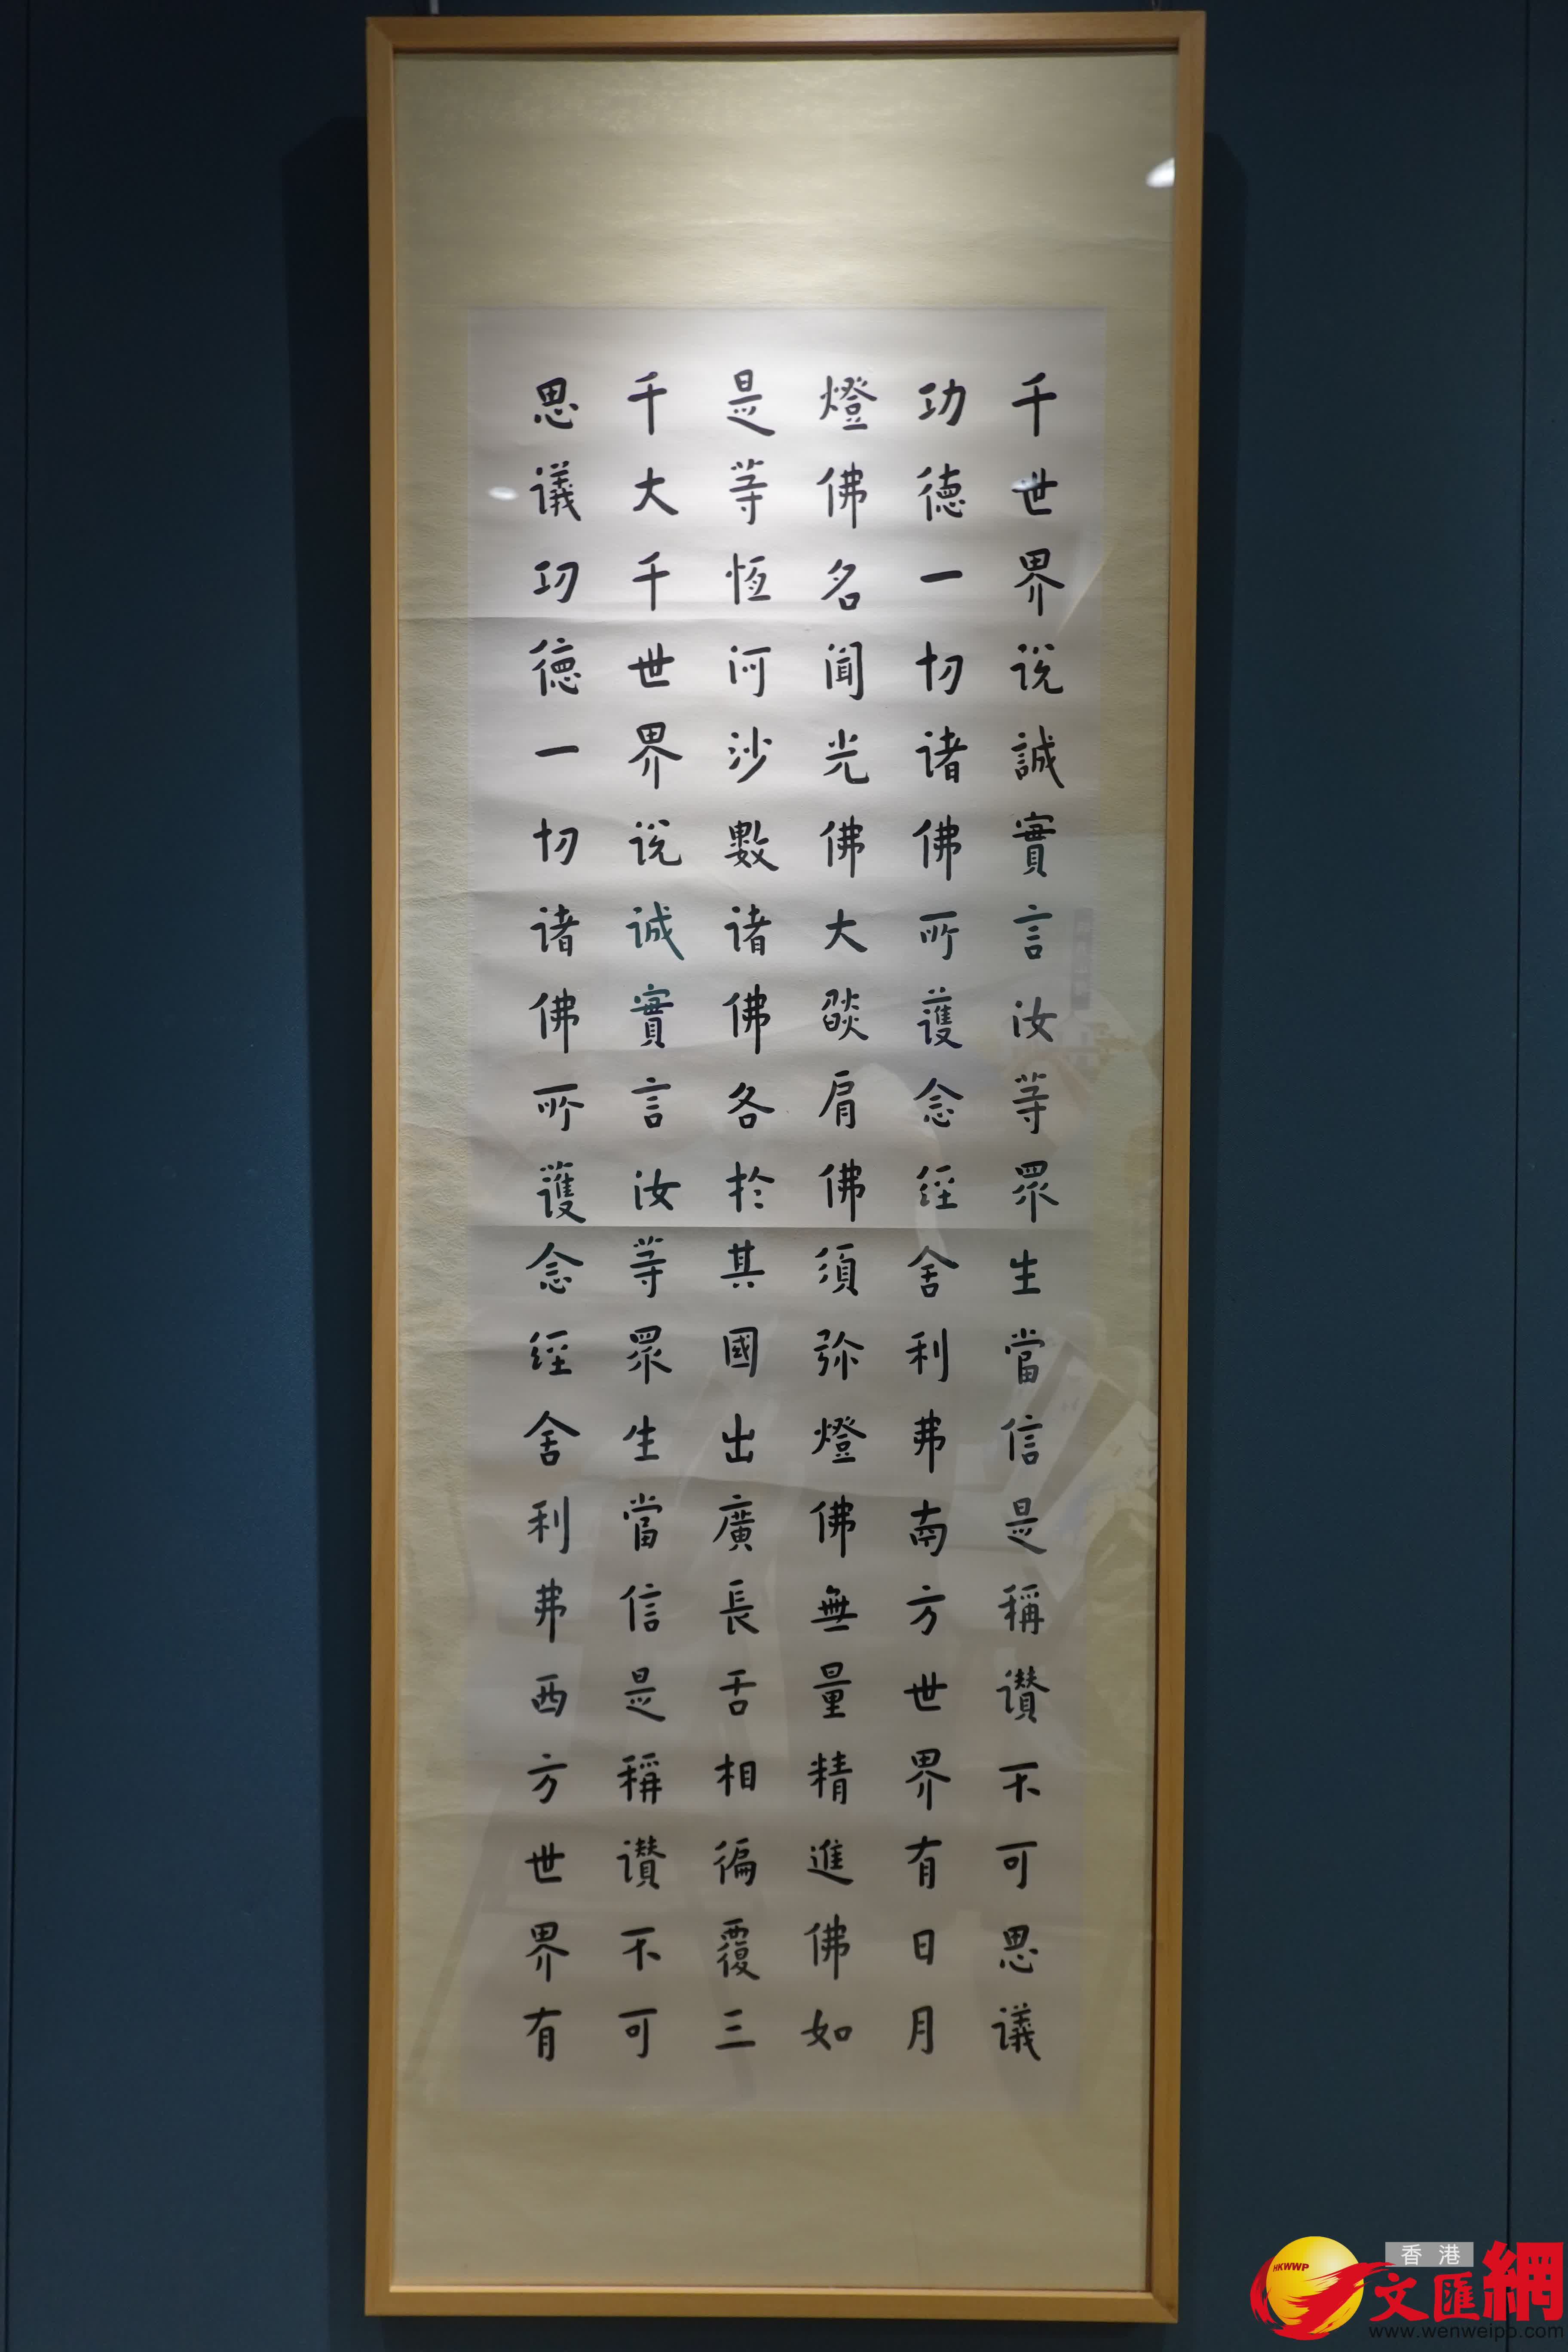 千世界說誠實言汝等眾生當信是稱讚不可思議
功德一切諸佛所護念經舍利弗南方世界有日月
燈佛名聞光佛大燄肩佛須弥燈佛無量精進佛如
是等恆河沙數諸佛各於其國出廣長舌相徧覆三
千大千世界說誠實言汝等眾生當信是稱讚不可
思議功德一切諸佛所護念經舍利弗西方世界有
HKWWP
香港
文匯網
www.wenweipo.com